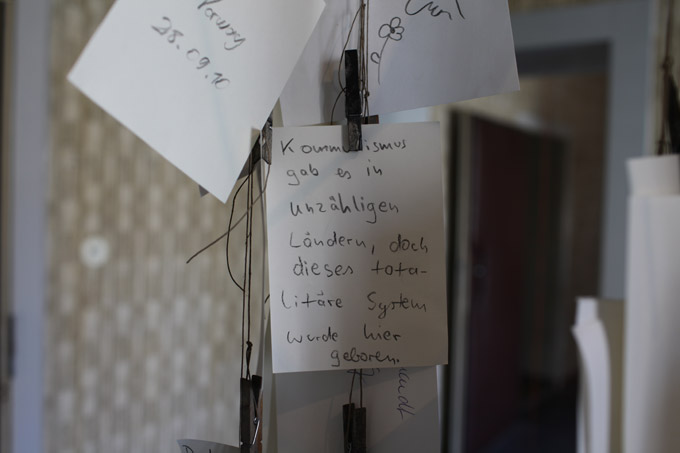 28.09.10
Kommunismus
gab es in
unzähligen
Ländern, doch
dieses tota-
litäre System
wurde hier
geboren.